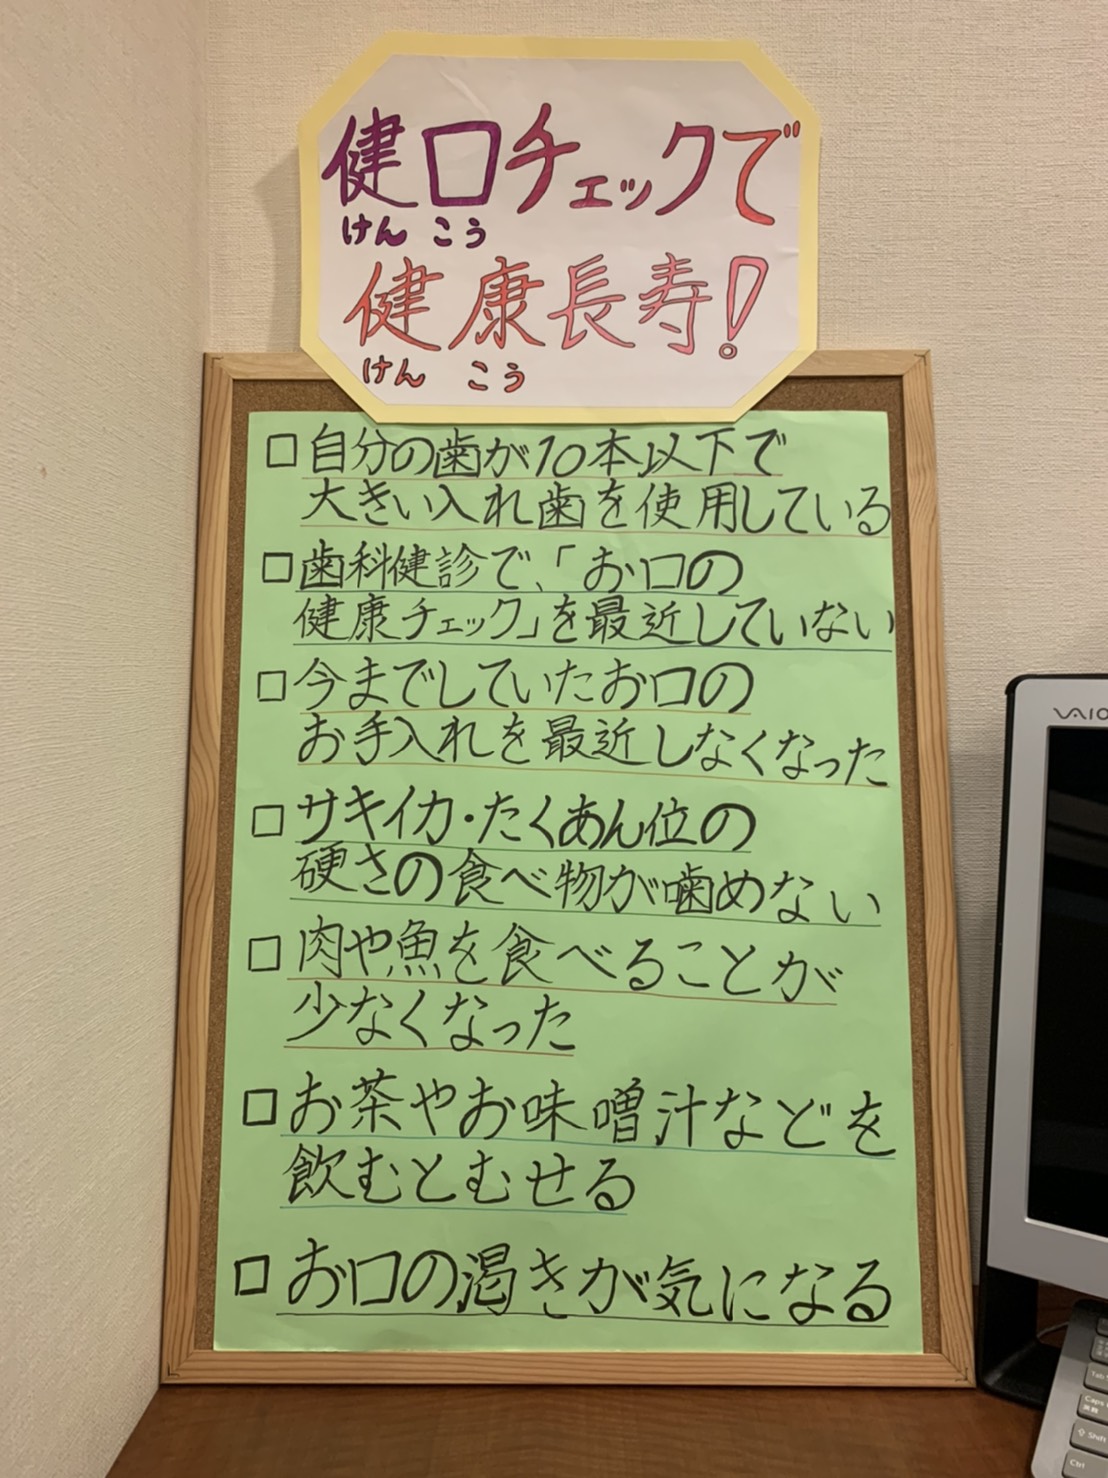 健口チェックで
けんこう
健康長寿!
けんこう
□自分の歯が10本以下で
大きい入れ歯を使用している
□歯科健診で、「お口の
健康チェック」を最近していない
□今までしていたお口の
お手入れを最近しなくなった
□サキイカ・たくあん位の
硬さの食べ物が噛めない
□肉や魚を食べることが
少なくなった
□お茶やお味噌汁などを
飲むとむせる
□お口の渇きが気になる
VAIO
Tab
Caps
英数
Shift
Ctrl